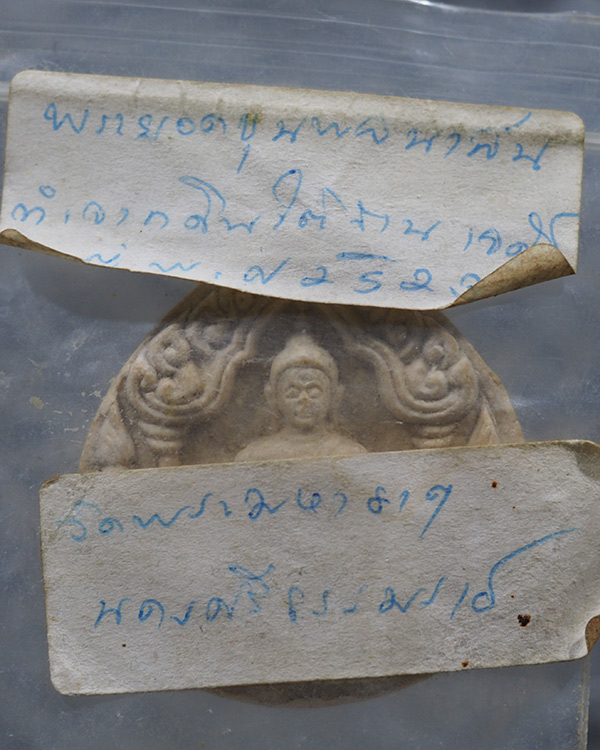 พรายอดขุนพลนาพัน
ทำจากดินใต้ฐานเจดีย์
พ.ศ ๒๕๒
วัดพระมหาธาตุ
นครศรีธรรมราช